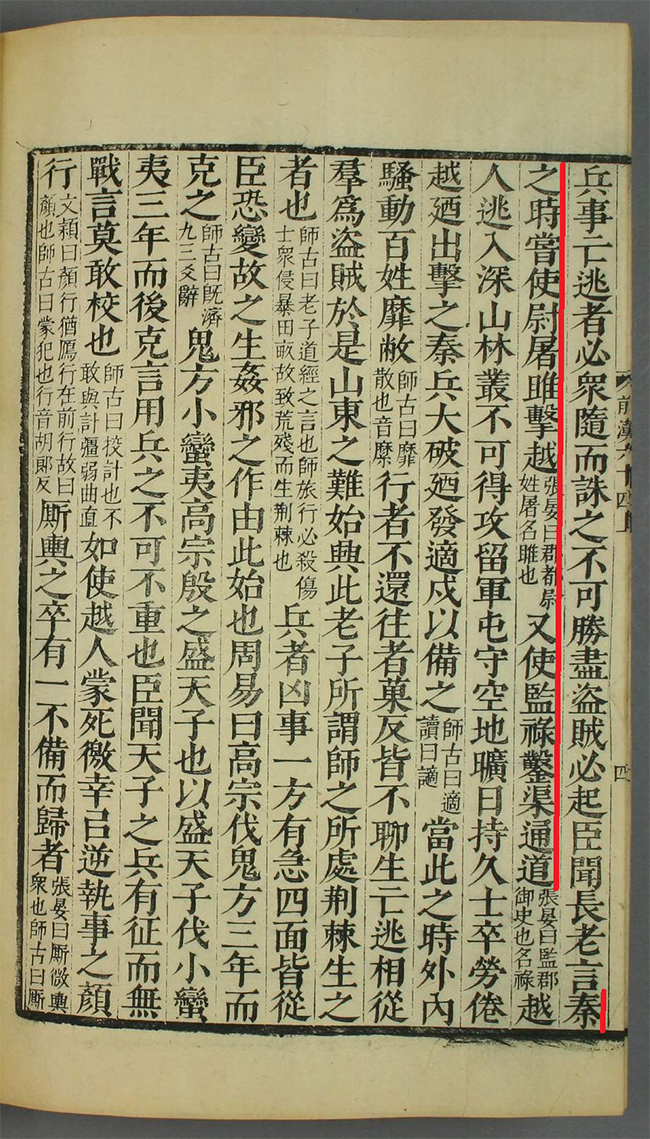 前漢六十四上
四
兵事亡逃者必衆隨而誅之不可勝盡盗賊必起臣聞長老言秦
之時嘗使尉屠睢擊越張晏曰郡都尉姓屠名睢也又使監祿鑿渠通道張晏曰監郡御史也名祿越
人逃入深山林叢不可得攻留軍屯守空地曠日持久士卒勞倦
越廼出擊之秦兵大破廼發適戍以備之師古曰適讀曰讁當此之時外內
騷動百姓靡敝師古曰靡散也音縻行者不還往者莫反皆不聊生亡逃相從
羣爲盗賊於是山東之難始興此老子所謂師之所處荆棘生之
者也師古曰老子道經之言也師旅行必殺傷士衆侵暴田畝故致荒殘而生荆棘也兵者凶事一方有急四面皆從
臣恐變故之生姦邪之作由此始也周易曰高宗伐鬼方三年而
克之師古曰旣濟九三爻辭鬼方小蠻夷高宗殷之盛天子也以盛天子伐小蠻
夷三年而後克言用兵之不可不重也臣聞天子之兵有征而無
戰言莫敢校也師古曰校計也不敢與計彊弱曲直如使越人蒙死徼幸以逆執事之顔
行文穎曰顔行猶鴈行在前行故曰顔也師古曰蒙犯也行音胡郞反厮輿之卒有一不備而歸者張晏曰厮微輿衆也師古曰厮